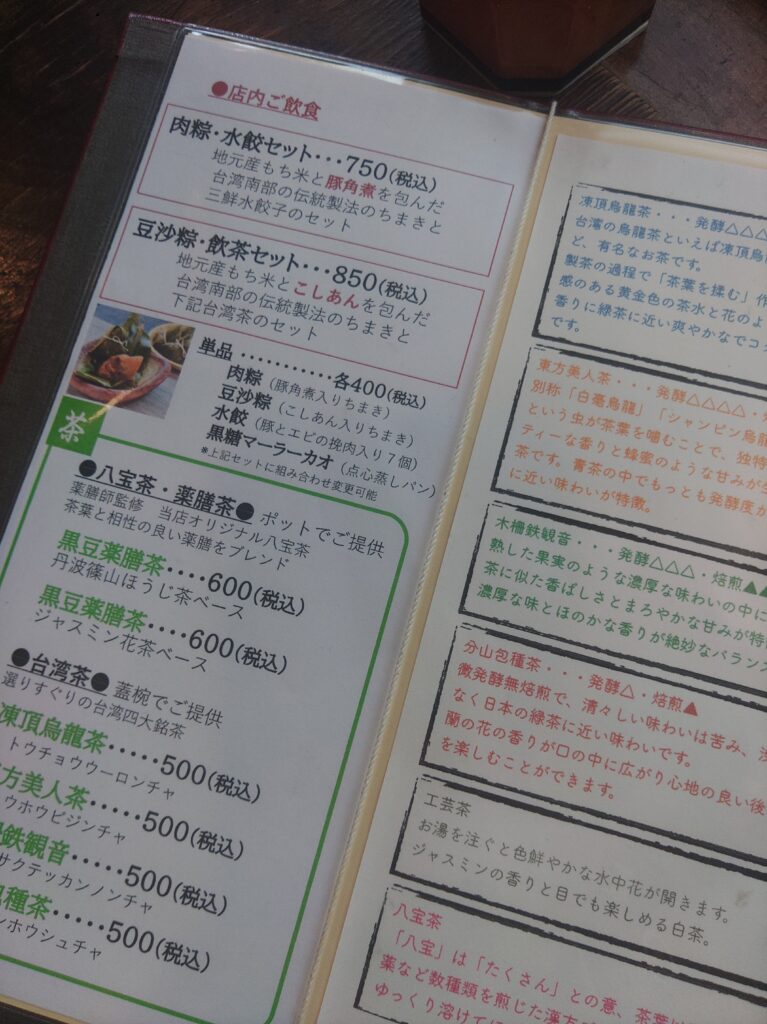 ●店内ご飲食
肉粽・水餃セット・・・750(税込)
地元産もち米と豚角煮を包んだ
台湾南部の伝統製法のちまきと
三鮮水餃子のセット
豆沙粽・飲茶セット・・・850(税込)
地元産もち米とこしあんを包んだ
台湾南部の伝統製法のちまきと
下記台湾茶のセット
単品 ………… 各400(税込)
肉粽(豚角煮入りちまき)
豆沙粽(こしあん入りちまき)
水餃(豚とエビの挽肉入り7個)
黒糖マーラーカオ(点心蒸しパン)
※上記セットに組み合わせ変更可能
茶
●八宝茶・薬膳茶● ポットでご提供
薬膳師監修 当店オリジナル八宝茶
茶葉と相性の良い薬膳をブレンド
黒豆薬膳茶・・・・600(税込)
丹波篠山ほうじ茶ベース
黒豆薬膳茶・・・・600(税込)
ジャスミン花茶ベース
●台湾茶● 蓋椀でご提供
選りすぐりの台湾四大銘茶
凍頂烏龍茶・・・・・500(税込)
トウチョウウーロンチャ
方美人茶・・・・・500(税込)
ウホウビジンチャ
鉄観音・・・・・500(税込)
サクテッカンノンチャ
種茶・・・・・500(税込)
ンホウシュチャ
凍頂烏龍茶・・・発酵△△△
台湾の烏龍茶といえば凍頂烏
ど、有名なお茶です。
製茶の過程で「茶葉を揉む」作
感のある黄金色の茶水と花のよ
香りに緑茶に近い爽やかなでコ
です。
東方美人茶・・・発酵△△△△・
別称「白毫烏龍」「シャンピン烏
という虫が茶葉を噛むことで、独特
ティーな香りと蜂蜜のような甘みが
茶です。青茶の中でもっとも発酵度が
に近い味わいが特徴。
木柵鉄観音・・・発酵△△△・焙煎▲▲
熟した果実のような濃厚な味わいの中に
茶に似た香ばしさとまろやかな甘みが特
濃厚な味とほのかな香りが絶妙なバランス
分山包種茶・・・発酵△・焙煎▲
微発酵無焙煎で、清々しい味わいは苦み、渋
なく日本の緑茶に近い味わいです。
蘭の花の香りが口の中に広がり心地の良い後
を楽しむことができます。
工芸茶
お湯を注ぐと色鮮やかな水中花が開きます。
ジャスミンの香りと目でも楽しめる白茶。
八宝茶
「八宝」は「たくさん」との意、茶葉
薬など数種類を煎じた漢方
ゆっくり溶けて